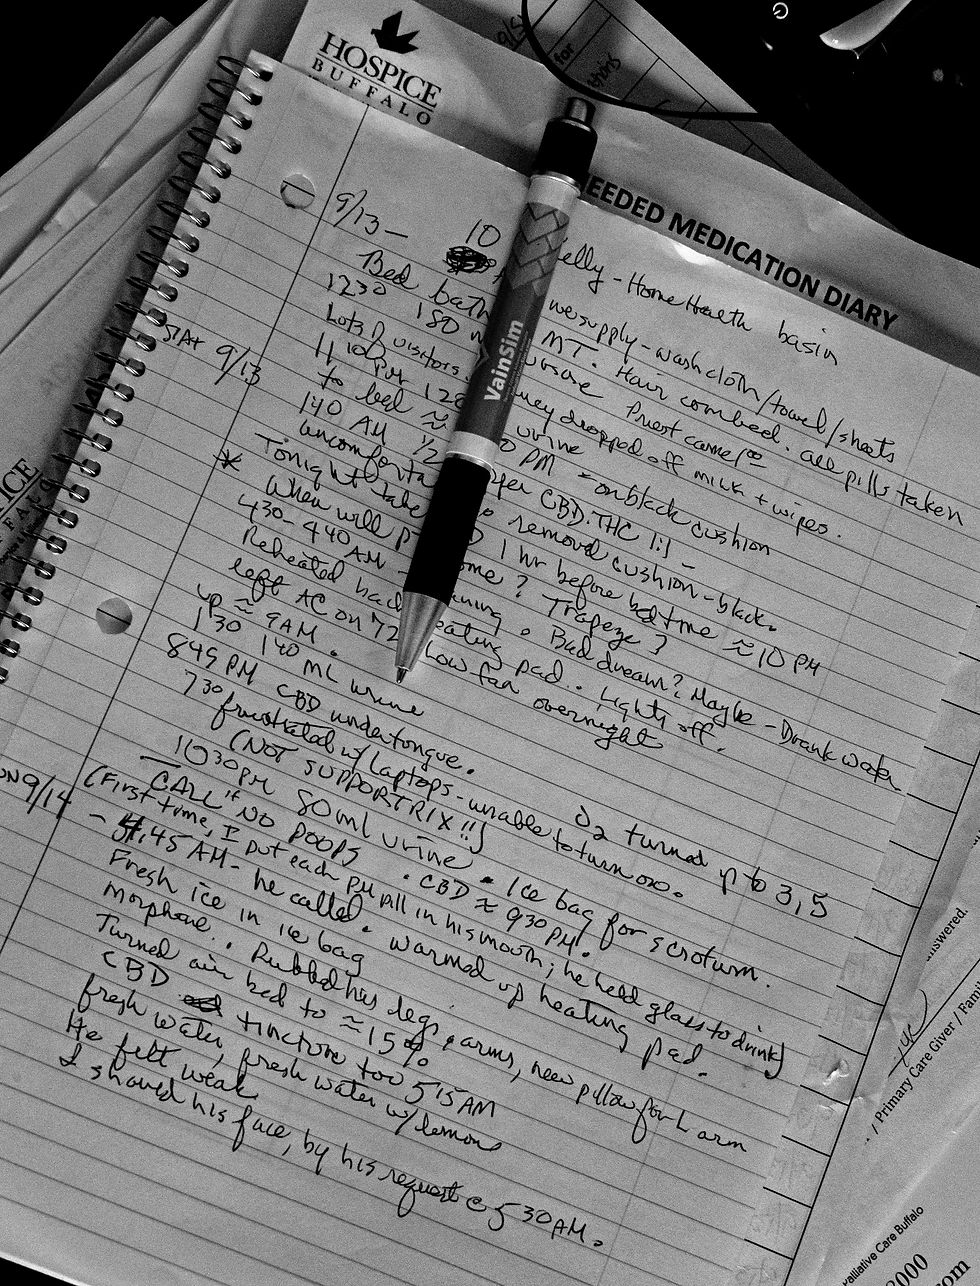 HOSPICE
BUFFALO
NEEDED MEDICATION DIARY
VainSim
9/13 - 10 Kelly - Home Health basin
Bed bath we supply - wash cloth/towel/sheets
1230 180 MT. Hair combed. all pills taken
Lots of visitors. Priest came
11 10 PM dropped off milk + wipes.
to bed ≈ urine
SAT 9/13
140 AM 1/2 PM - on black cushion
uncomforta per CBD:THC 1:1 -
Tonight take removed cushion - black.
* When will PT 1 hr before bedtime ≈ 10 PM
430-440 AM - ome? Trapeze?
Reheated bac . Bad dream? Maybe - Drank water
left AC on 72 eating pad.. Lights off.
up ≈ 9 AM. Low fan overnight
130 140 ML urine
849 PM CBD undertongue.
730 frustrated w/ laptops - unable to turn on.
(NOT SUPPORTRIX!!) O2 turned up to 3.5
1030 PM 80 ml urine. Ice bag for scrotum.
- CALL "NO POOPS. CBD ≈ 930 PM.
9/14
(First time, I put each pill in his mouth; he held glass to drink)
- 4:45 AM - he called. warmed up heating pad.
Fresh ice in ice bag
morphone.. Rubbed his legs, arms, new pillow for L arm
Turned air bed to ≈ 15%
CBD tincture too 515 AM
fresh water, fresh water w/ lemons
He felt weak
I shaved his face, by his request @ 530 AM.
nswered.
/ Primary Care Giver / Famil
alliative Care Buffalo